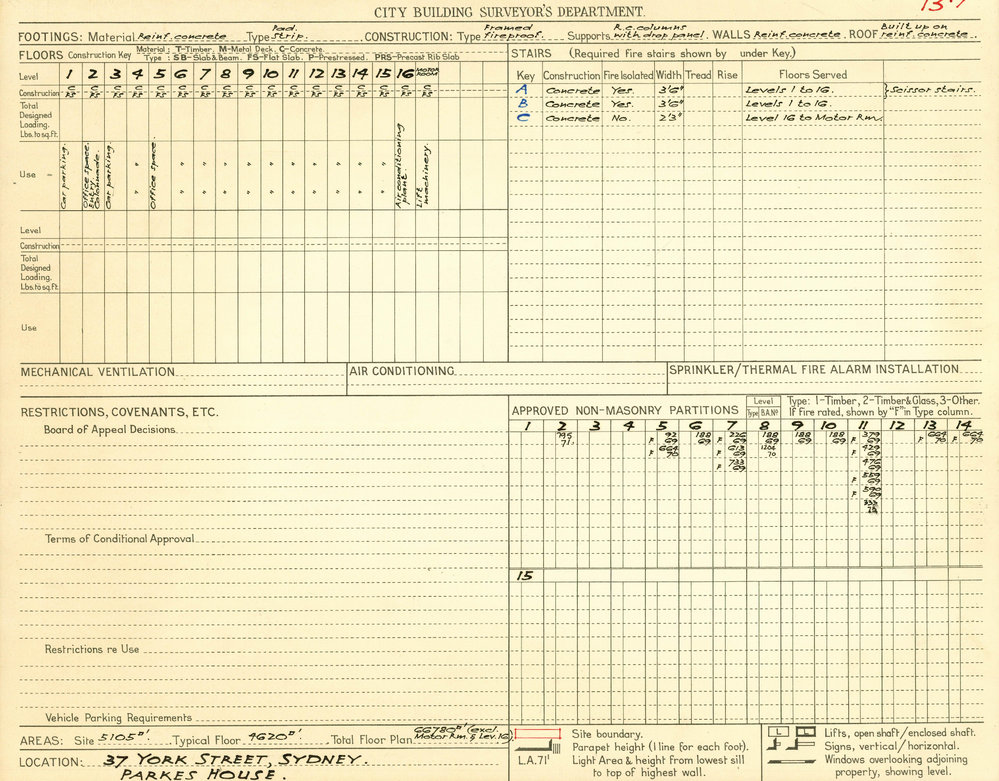 13·7
CITY BUILDING SURVEYOR'S DEPARTMENT.
FOOTINGS: Material Reinf. concrete Type Pad. Strip. CONSTRUCTION: Type Framed fireproof. Supports R.c. columns with drop panel. WALLS Reinf. concrete. ROOF Built up on reinf. concrete.
FLOORS Construction Key Material; T-Timber, M-Metal Deck, C-Concrete.
Type : SB-Slab & Beam. FS-Flat Slab. P-Prestressed. PRS-Precast Rib Slab
Level 1 2 3 4 5 6 7 8 9 10 11 12 13 14 15 16 MOTOR ROOM
Construction C FS C FS C FS C FS C FS C FS C FS C FS C FS C FS C FS C FS C FS C FS C FS C FS C FS
Total Designed Loading. Lbs. to sq. ft.
Use Car parking. Office space. Entry. Colonnade. Car parking. " Office space " " " " " " " " " " Air conditioning plant Lift machinery.
Level
Construction
Total Designed Loading. Lbs. to sq. ft.
Use
STAIRS (Required Fire stairs shown by under Key.)
Key Construction Fire Isolated Width Tread Rise Floors Served
A Concrete Yes. 3'6" Levels 1 to 16. } Scissor stairs.
B Concrete Yes. 3'6" Levels 1 to 16.
C Concrete No. 2'3" Level 16 to Motor Rm.
MECHANICAL VENTILATION
AIR CONDITIONING
SPRINKLER/THERMAL FIRE ALARM INSTALLATION
RESTRICTIONS, COVENANTS, ETC.
Board of Appeal Decisions.
Terms of Conditional Approval
Restrictions re Use
Vehicle Parking Requirements
APPROVED NON-MASONRY PARTITIONS
Level Type B.A.Nº
Type: 1-Timber, 2-Timber & Glass, 3-Other.
If Fire rated, shown by "F" in Type column.
1 2 3 4 5 6 7 8 9 10 11 12 13 14
795 71. F 92 69 188 69 F 226 69 188 69 188 69 188 69 F 379 69 F 664 70 664 70
F 664 70 F 613 69 1204 70 F 429 69
F 733 69 F 476 69
F 559 69
F 590 69
15
AREAS: Site 5105□'. Typical Floor 4620□'. Total Floor Plan 66780□' (excl. Motor Rm. & Lev. 16)
LOCATION: 37 YORK STREET, SYDNEY.
PARKES HOUSE.
Site boundary.
Parapet height (1 line for each foot).
L.A.71' Light Area & height from lowest sill
to top of highest wall.
L L Lifts, open shaft/enclosed shaft.
Signs, vertical/horizontal.
Windows overlooking adjoining
property, showing level.